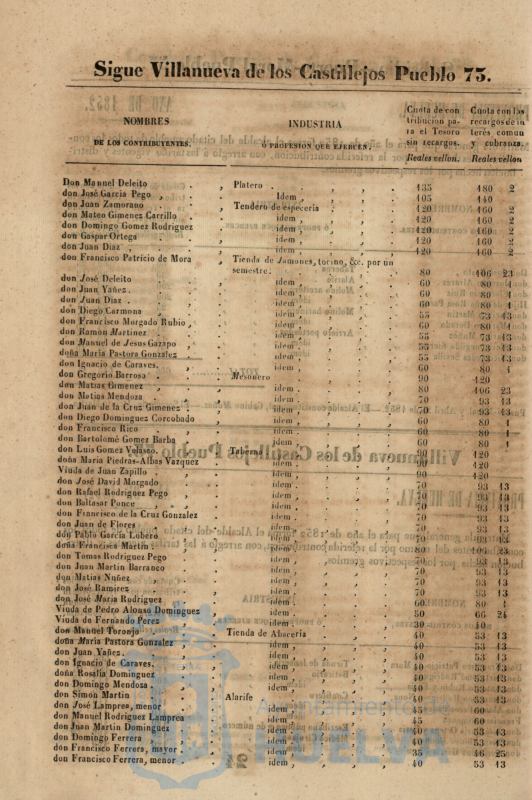 Sigue Villanueva de los Castillejos Pueblo 75.
NOMBRES
DE LOS CONTRIBUYENTES.
INDUSTRIA
Ó PROFESION QUE EJERCEN.
Cuota de con
tribucion pa-
ra el Tesoro
sin recargos.
Reales vellon.
Cuota con los
recargos de in
terés comun
y cobranza.
Reales vellon
Don Manuel Deleito , Platero . 135 180 2
don José García Pego , Idem . 105 140
don Juan Zamorano . , Tendero de especeria . 120 160 2
don Mateo Gimenez Carrillo , idem , 120 160 2
don Domingo Gomez Rodriguez , idem , 120 160 2
don Gaspar Ortega . , idem , 120 160 2
don Juan Diaz . , idem , 120 160 2
don Francisco Patricio de Mora , Tienda de Jamones, torino, &c. por un
semestre. 80 106 23
don José Deleito . idem , 60 80 1
don Juan Yañez . idem , 60 80 1
don Juan Diaz . idem , 60 80 1
don Diego Carmona . idem , 55 73 13
don Francisco Morgado Rubio , idem , 60 80 1
don Ramon Martinez . idem , 55 73 13
don Manuel de Jesus Gazapo . idem , 55 73 13
doña Maria Pastora Gonzalez . idem , 55 73 13
don Ignacio de Caraves. idem , 60 80 1
don Gregorio Barrosa . Mesonero 90 120
don Matias Gimenez . idem . 80 106 23
don Matias Mendoza . idem , 70 93 13
don Juan de la Cruz Gimenez . idem , 70 93 13
don Diego Dominguez Corcobado idem , 60 80 1
don Francisco Rico . idem , 60 80 1
don Bartolomé Gomez Barba idem , 60 80 1
don Luis Gomez Velasco. Taberna 90 120
doña Maria Piedras-Albas Vazquez idem , 90 120
Viuda de Juan Zapillo . idem , 90 120
don José David Morgado . idem , 70 93 13
don Rafael Rodriguez Pego . idem , 70 93 13
don Baltasar Ponce . idem , 70 93 13
don Francisco de la Cruz Gonzalez idem , 70 93 13
don Juan de Flores . idem , 70 93 13
don Pablo García Lobero . idem , 70 93 13
doña Francisca Martin . idem ,
don Tomas Rodriguez Pego . idem , 70 93 13
don Juan Martin Barranco . idem , 70 93 13
don Matias Nuñez . idem , 70 93 13
don José Ramirez . idem , 70 93 13
don José Maria Rodriguez . idem , 60 80 1
Viuda de Pedro Alonso Dominguez idem , 50 66 24
Viuda de Fernando Perez . idem , 30 40
don Manuel Toronjo . Tienda de Abaceria 40 53 13
doña Maria Pastora Gonzalez . idem , 40 53 13
don Juan Yañez. idem , 40 53 13
don Ignacio de Caraves. idem , 40 53 13
doña Rosalia Dominguez . idem , 40 53 13
don Domingo Mendoza . idem , 40 53 13
don Simon Martin . Alarife 40 53 13
don José Lampres, menor . idem , 45 60
don Manuel Rodriguez Lamprea idem , 45 60
don Juan Martin Dominguez . idem , 40 53 13
don Domingo Ferrera . idem , 40 53 13
don Francisco Ferrera, mayor . idem , 35 46 25
don Francisco Ferrera, menor . idem , 40 53 13
Ayuntamiento de
HUELVA